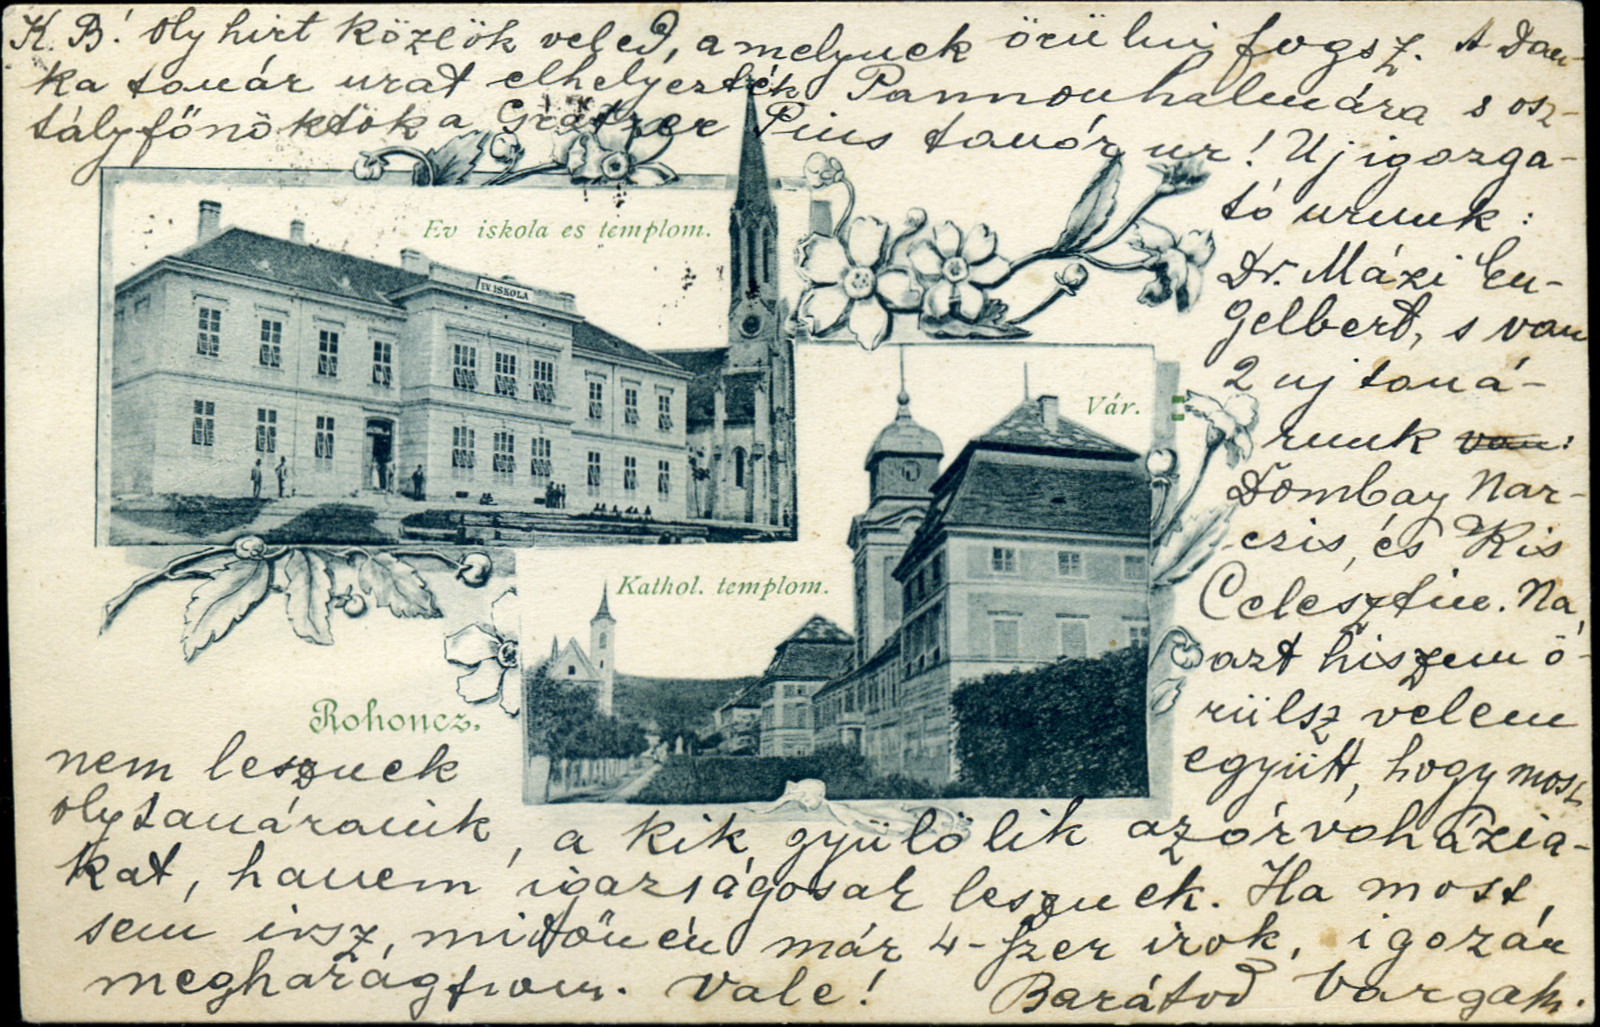 K. B! Oly hirt közlök veled, a melynek örülni fogsz. A Dan-
ka tanár urat elhelyezték Pannonhalmára s osz-
tályfőnöktök a Grátzer Pius tanár ur! Uj igazga-
tó urunk:
Dr. Mázi En-
gelbert, s van
2 uj taná-
runk van:
Dombay Nar-
czis, és Kis
Celesztin. Na,
azt hiszem ö-
rülsz velem
együtt, hogy most
nem lesznek
oly tanáraink, a kik gyülölik az árvaházia-
kat, hanem igazságosak lesznek. Ha most
sem irsz, midőn én már 4-szer irok, igazán
megharagszom. Vale! Barátod Varga
Ev iskola es templom.
EV. ISKOLA
Vár.
Kathol. templom.
Rohoncz.